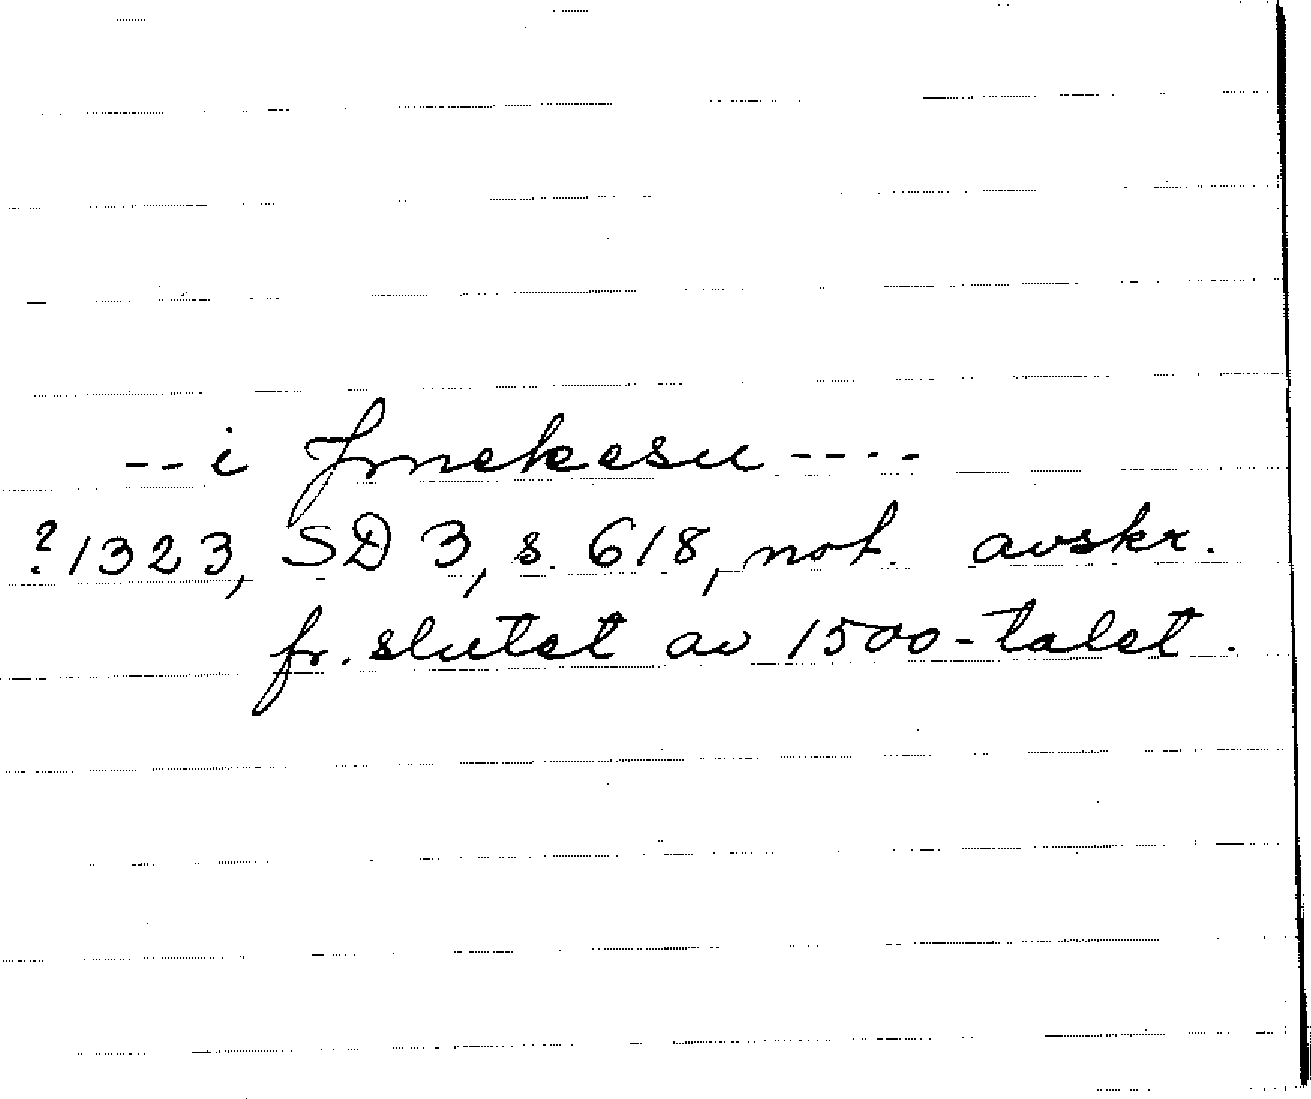 --i Jmekesu----
?1323, SD 3, s. 618, not. avskr.
fr. slutet av 1500-talet.